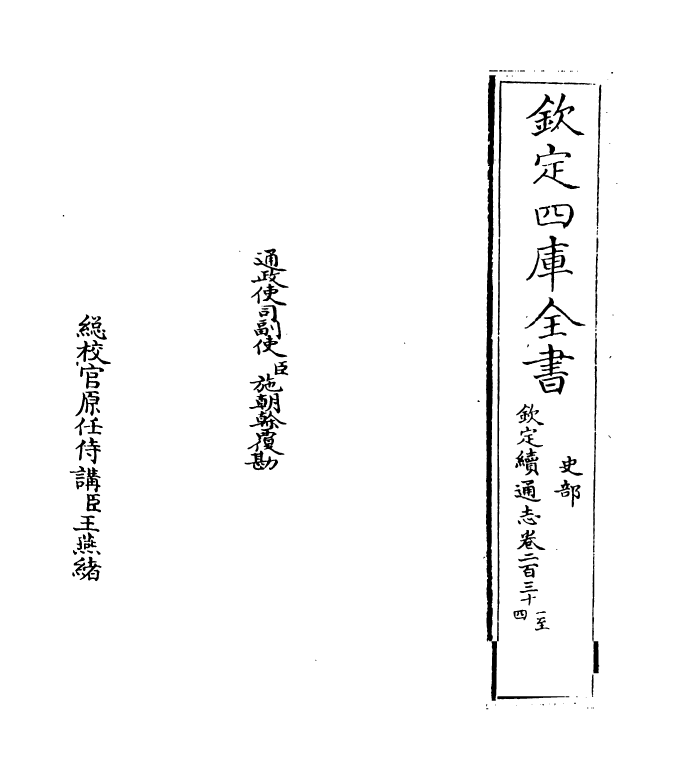 欽定四庫全書
史部
欽定續通志卷二百三十一至四
通政使司副使臣施朝幹覆勘
總校官原任侍講臣王燕緒